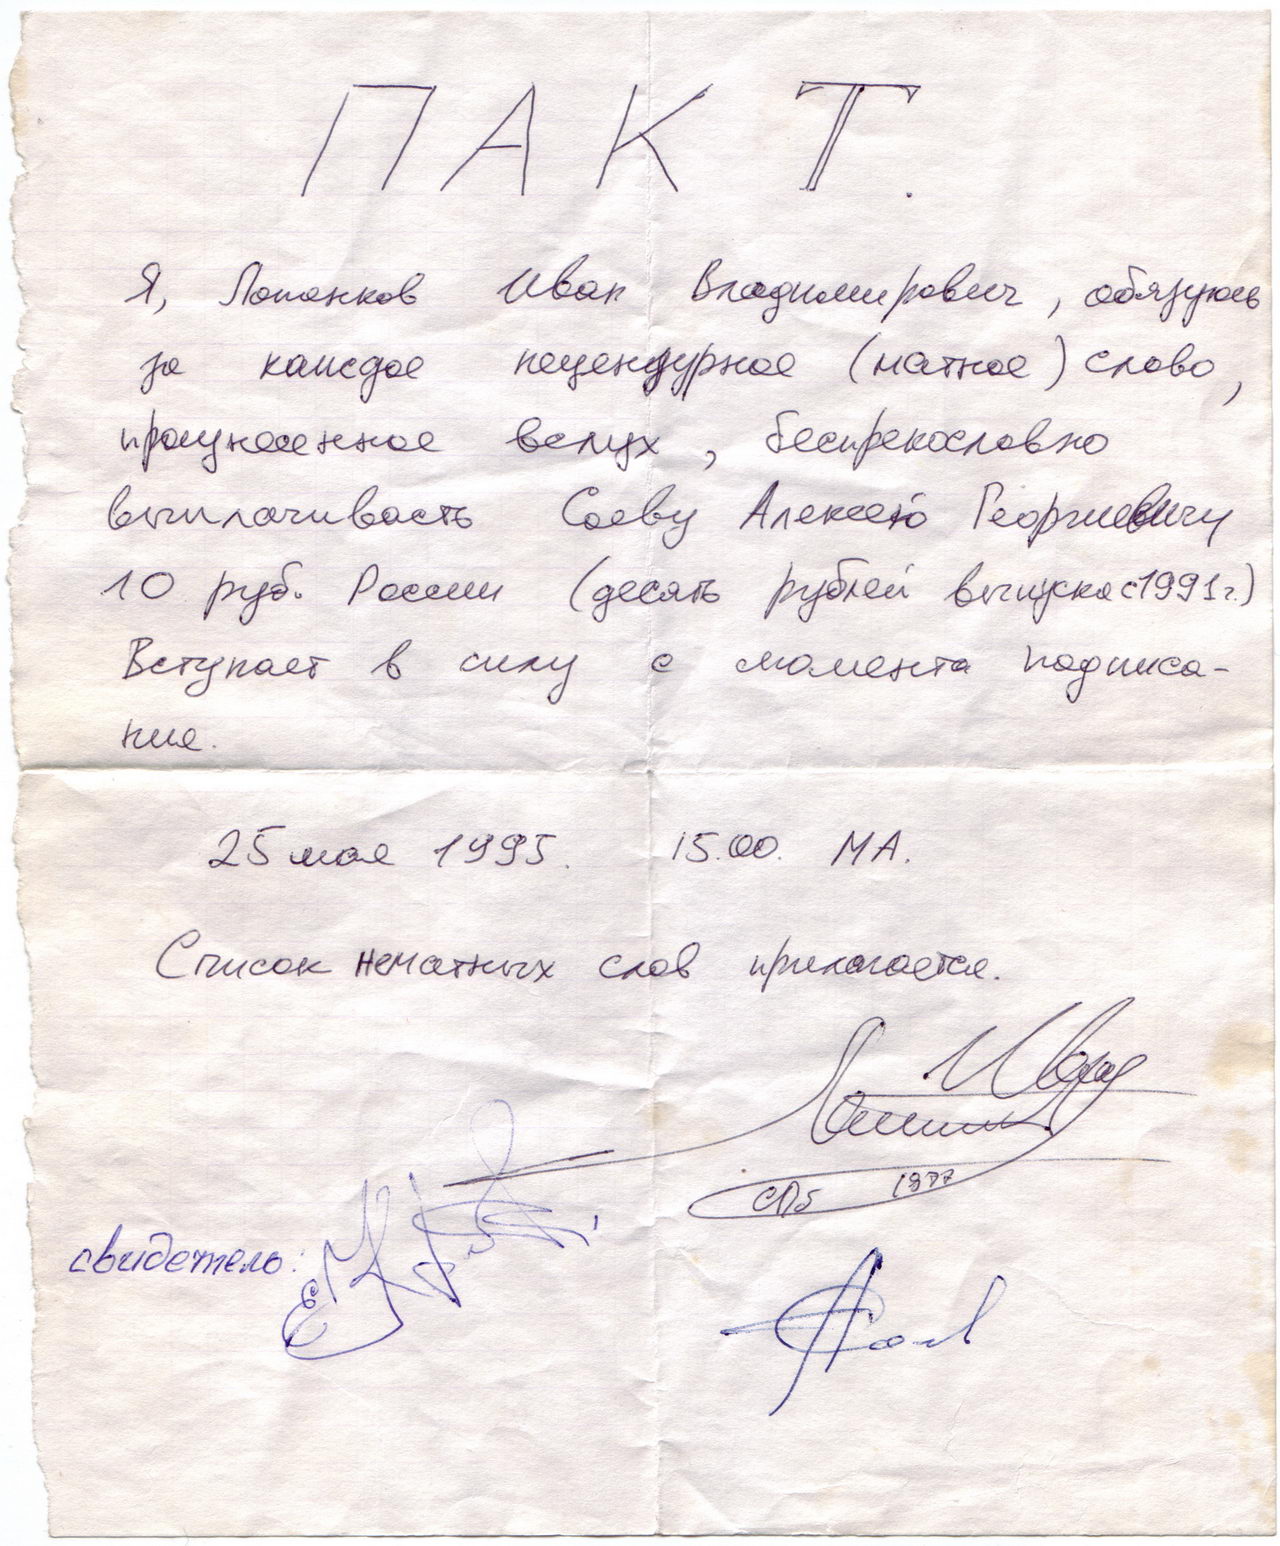 ПАКТ.
Я, Лопанков Иван Владимирович, обязуюсь
за каждое нецензурное (матное) слово,
произнесенное вслух, беспрекословно
выплачивать Соеву Алексею Георгиевичу
10 руб. России (десять рублей выпуска с 1991 г.)
Вступает в силу с момента подписа-
ния.
25 мая 1995. 15.00. МА.
Список нематных слов прилагается.
Иван
СПб 1977
свидетель: